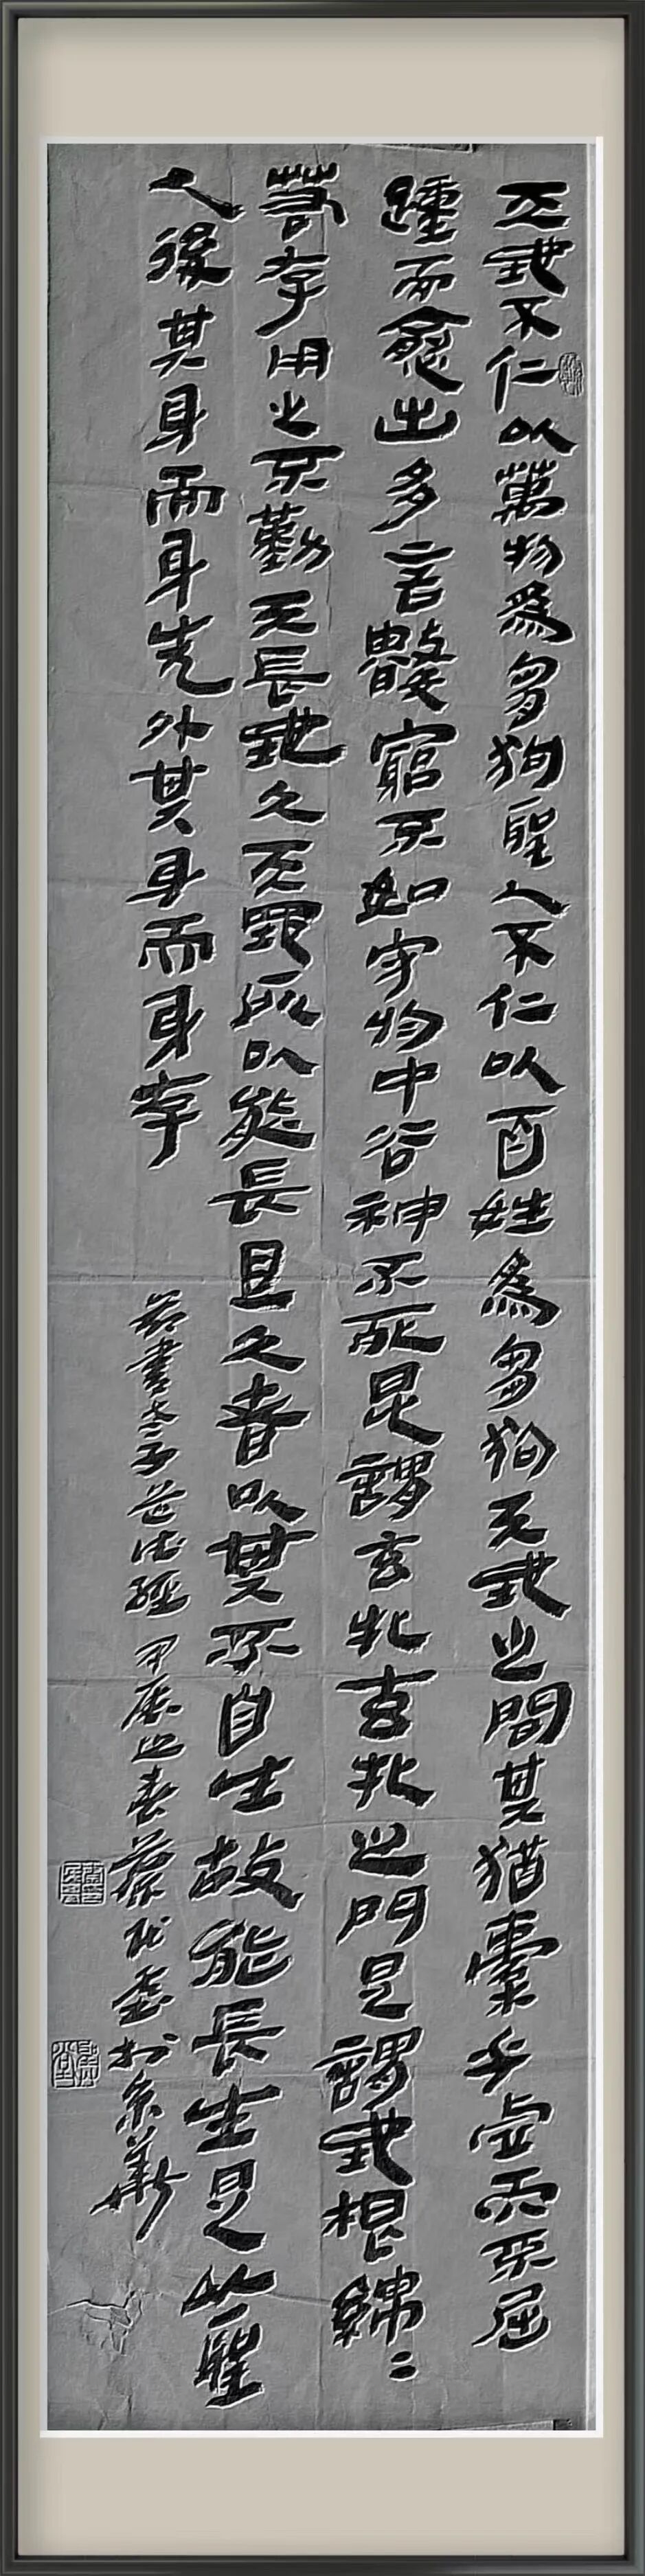 天地不仁以萬物為芻狗聖人不仁以百姓為芻狗天地之間其猶橐乎虛而不屈
踵而愈出多言數窮不如守物中谷神不死是謂玄牝玄牝之門是謂地根綿〻
若存用之不勤天長地久天地所以能長且久者以其不自生故能長生是以聖
人後其身而身先外其身而身存
茲書老子道德經甲辰之春蔡於京華